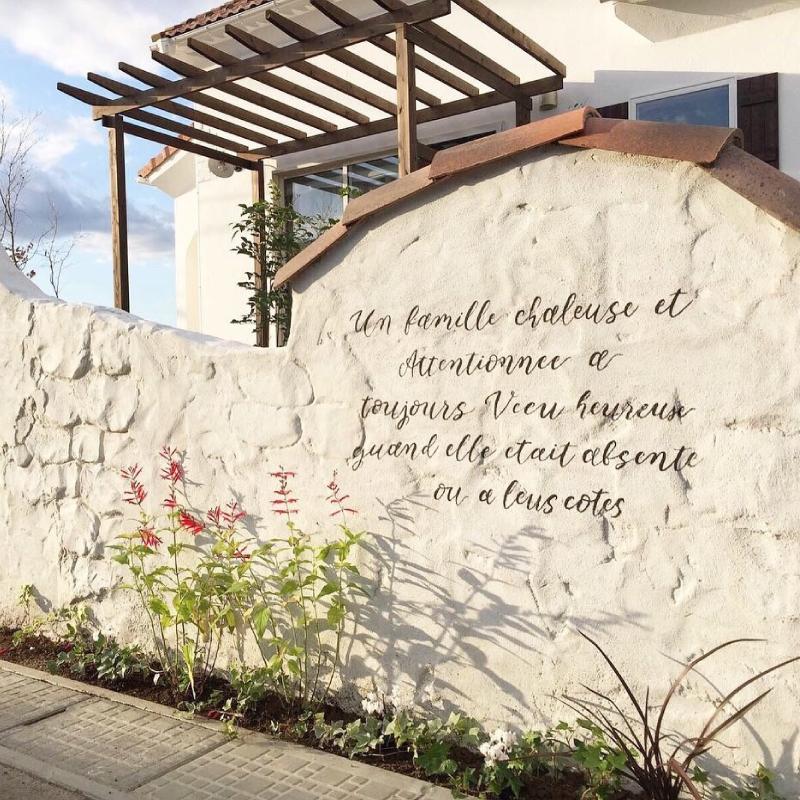 Un famille chaleuse et
Attentionnee a
toujours Vecu heureuse
quand elle etait absente
ou a leus cotes